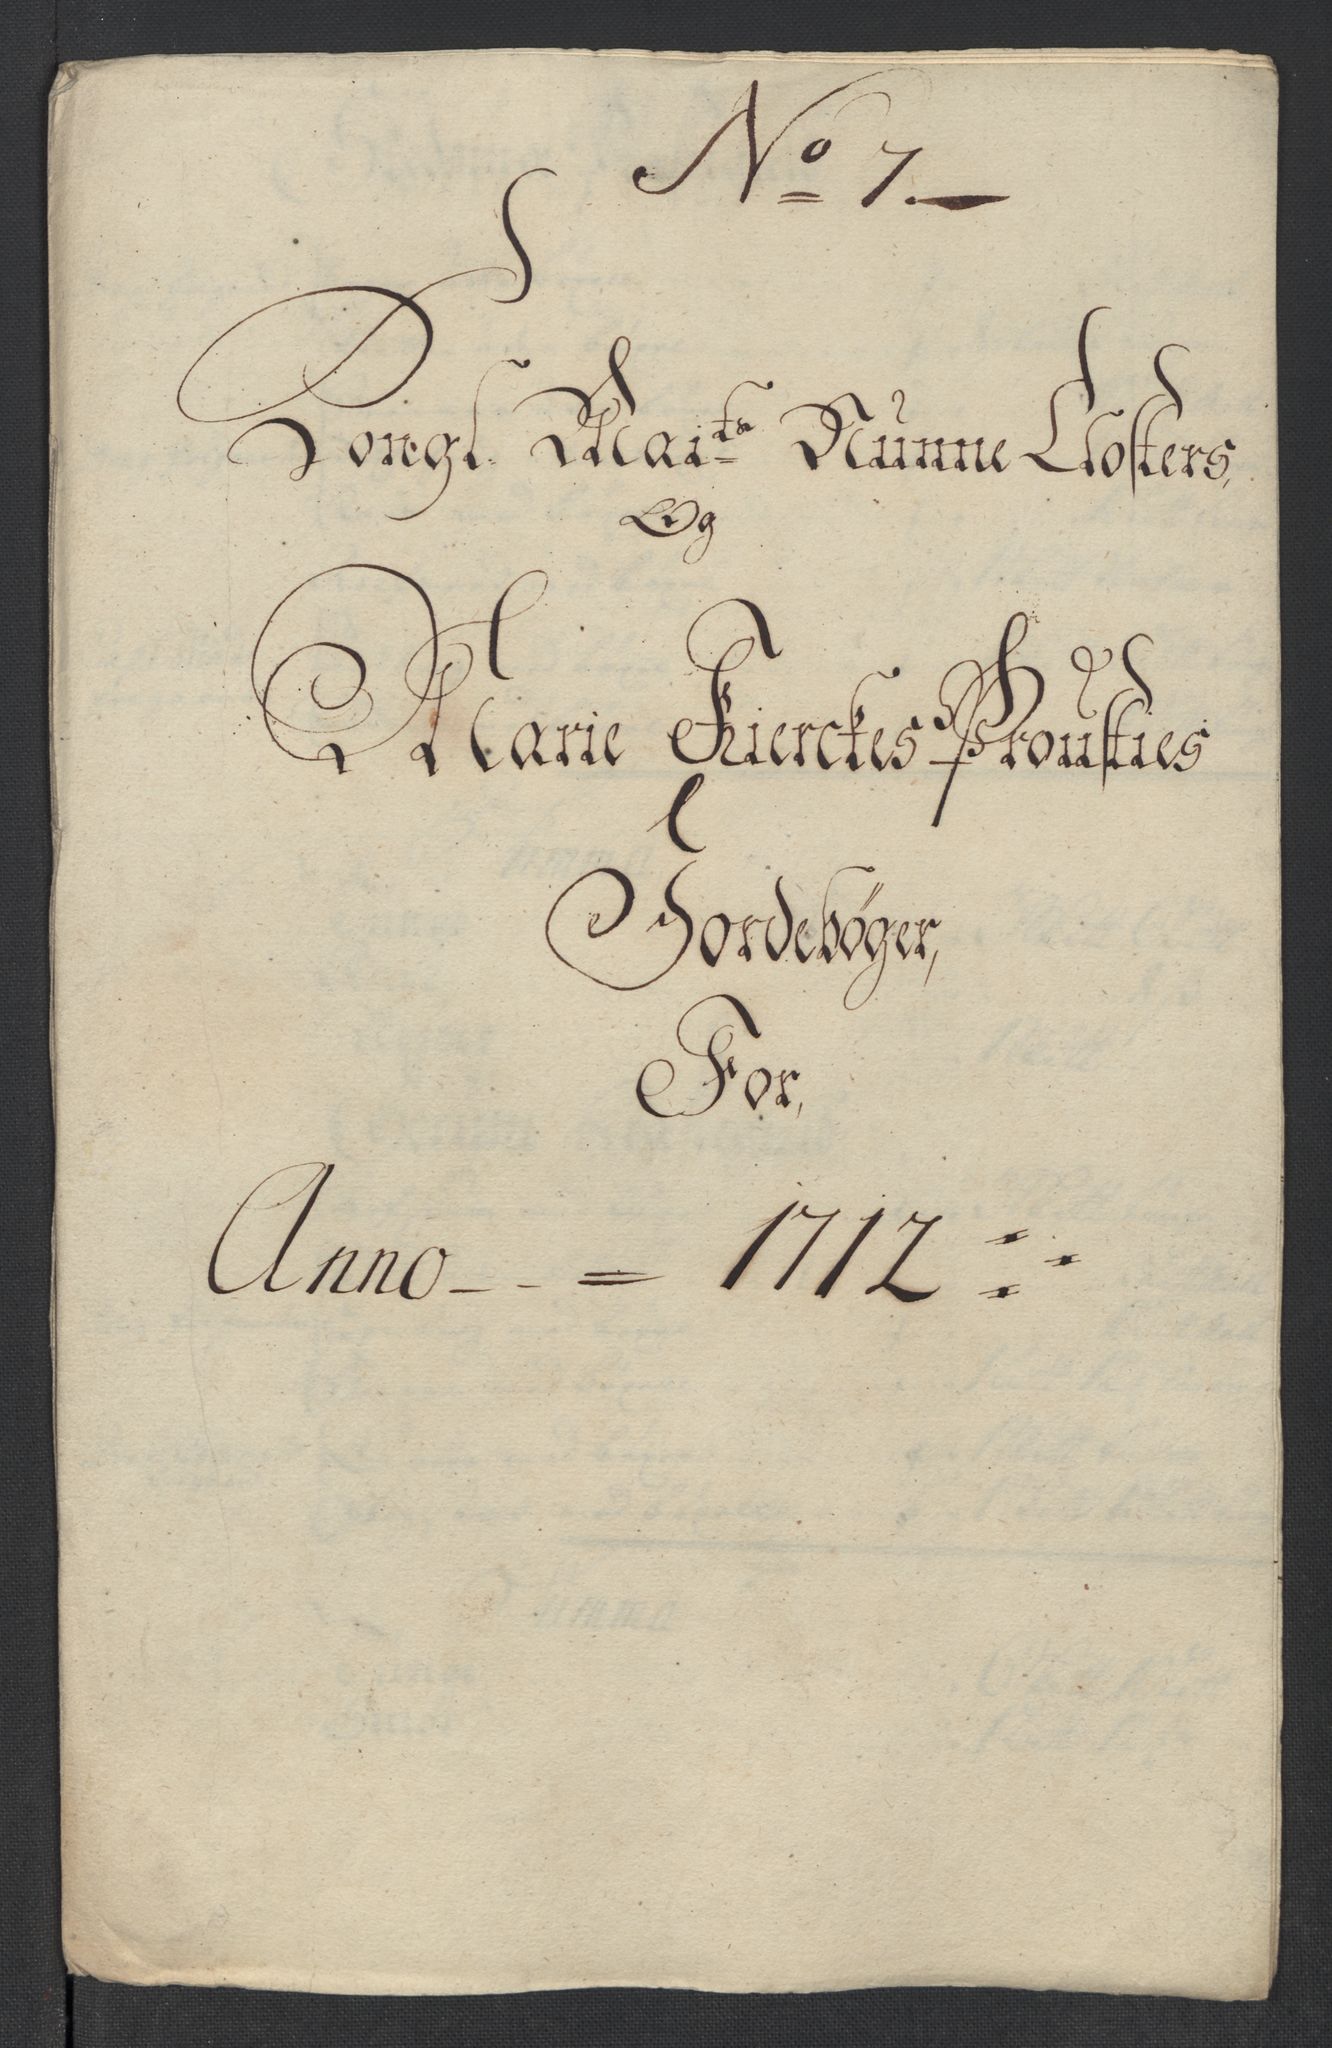 No 7.
Kongl. Maits Nunne Closters,
Og
Marie Kierckes Prousties
Jordebøger,
For,
Anno - - = 1712